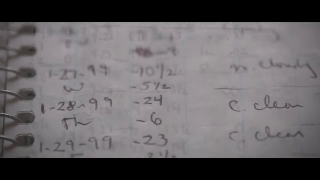 1-27-99 -10½ m. cloudy
W -5½
1-28-99 -24 c. clear
Th -6
1-29-99 -23 c. clear